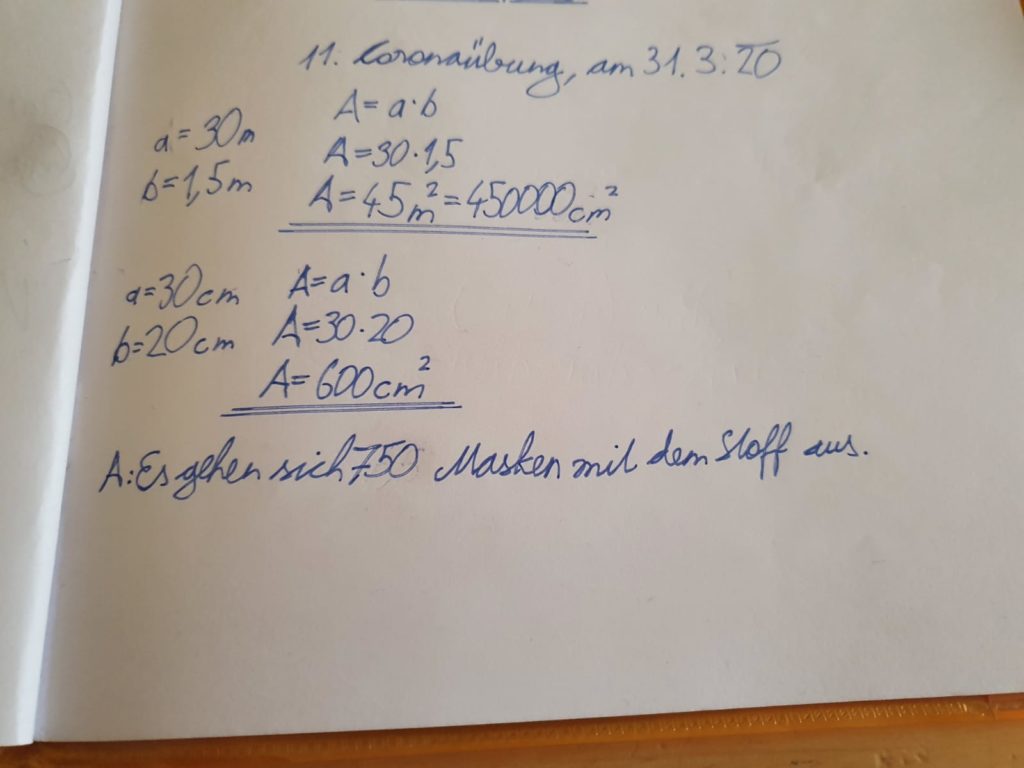 11. Coronaübung, am 31.3.20
a=30m
b=1,5m
A=a·b
A=30·1,5
A=45m²=450000cm²
a=30cm
b=20cm
A=a·b
A=30·20
A=600cm²
A:Es gehen sich 750 Masken mit dem Stoff aus.